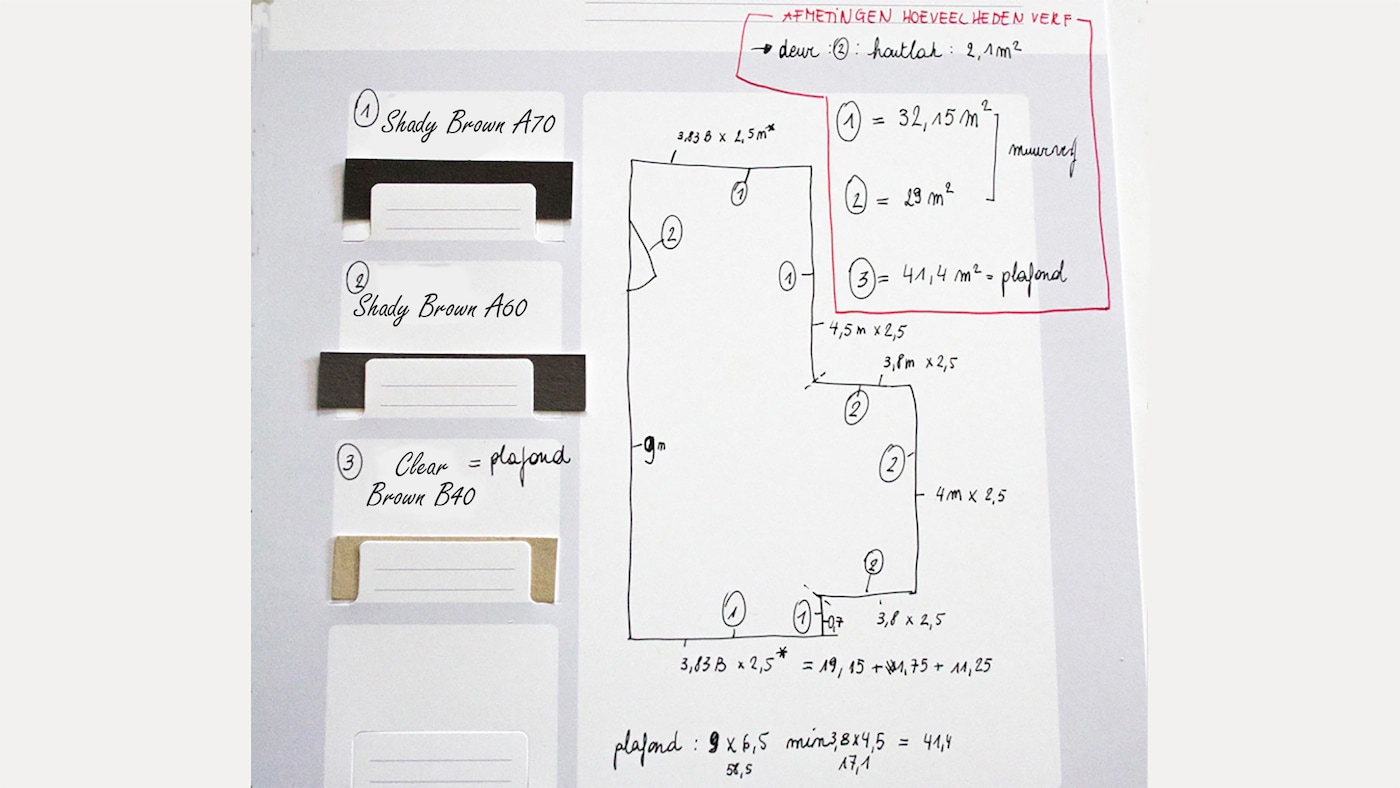 AFMETINGEN HOEVEELHEDEN VERF
→ deur : ② : houtlak : 2,1m²
① Shady Brown A70
② Shady Brown A60
③ Clear = plafond
Brown B40
① = 32,15 m²
② = 29 m²
muurverf
③ = 41,4 m² = plafond
3,83 B x 2,5m*
①
②
①
4,5m x 2,5
3,8m x 2,5
②
②
9m
4m x 2,5
②
①
①
0,7
3,8 x 2,5
3,83 B x 2,5* = 19,15 + 1,75 + 11,25
plafond : 9 x 6,5 min 3,8x4,5 = 41,4
58,5
17,1